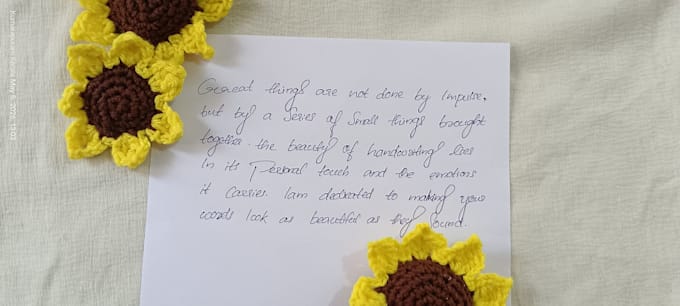 Great things are not done by Impulse,
but by a Series of Small things brought
together. the beauty of handwriting lies
In its Personal touch and the emotions
it Carries. Iam dedicated to making your
words look as beautiful as they Sound.